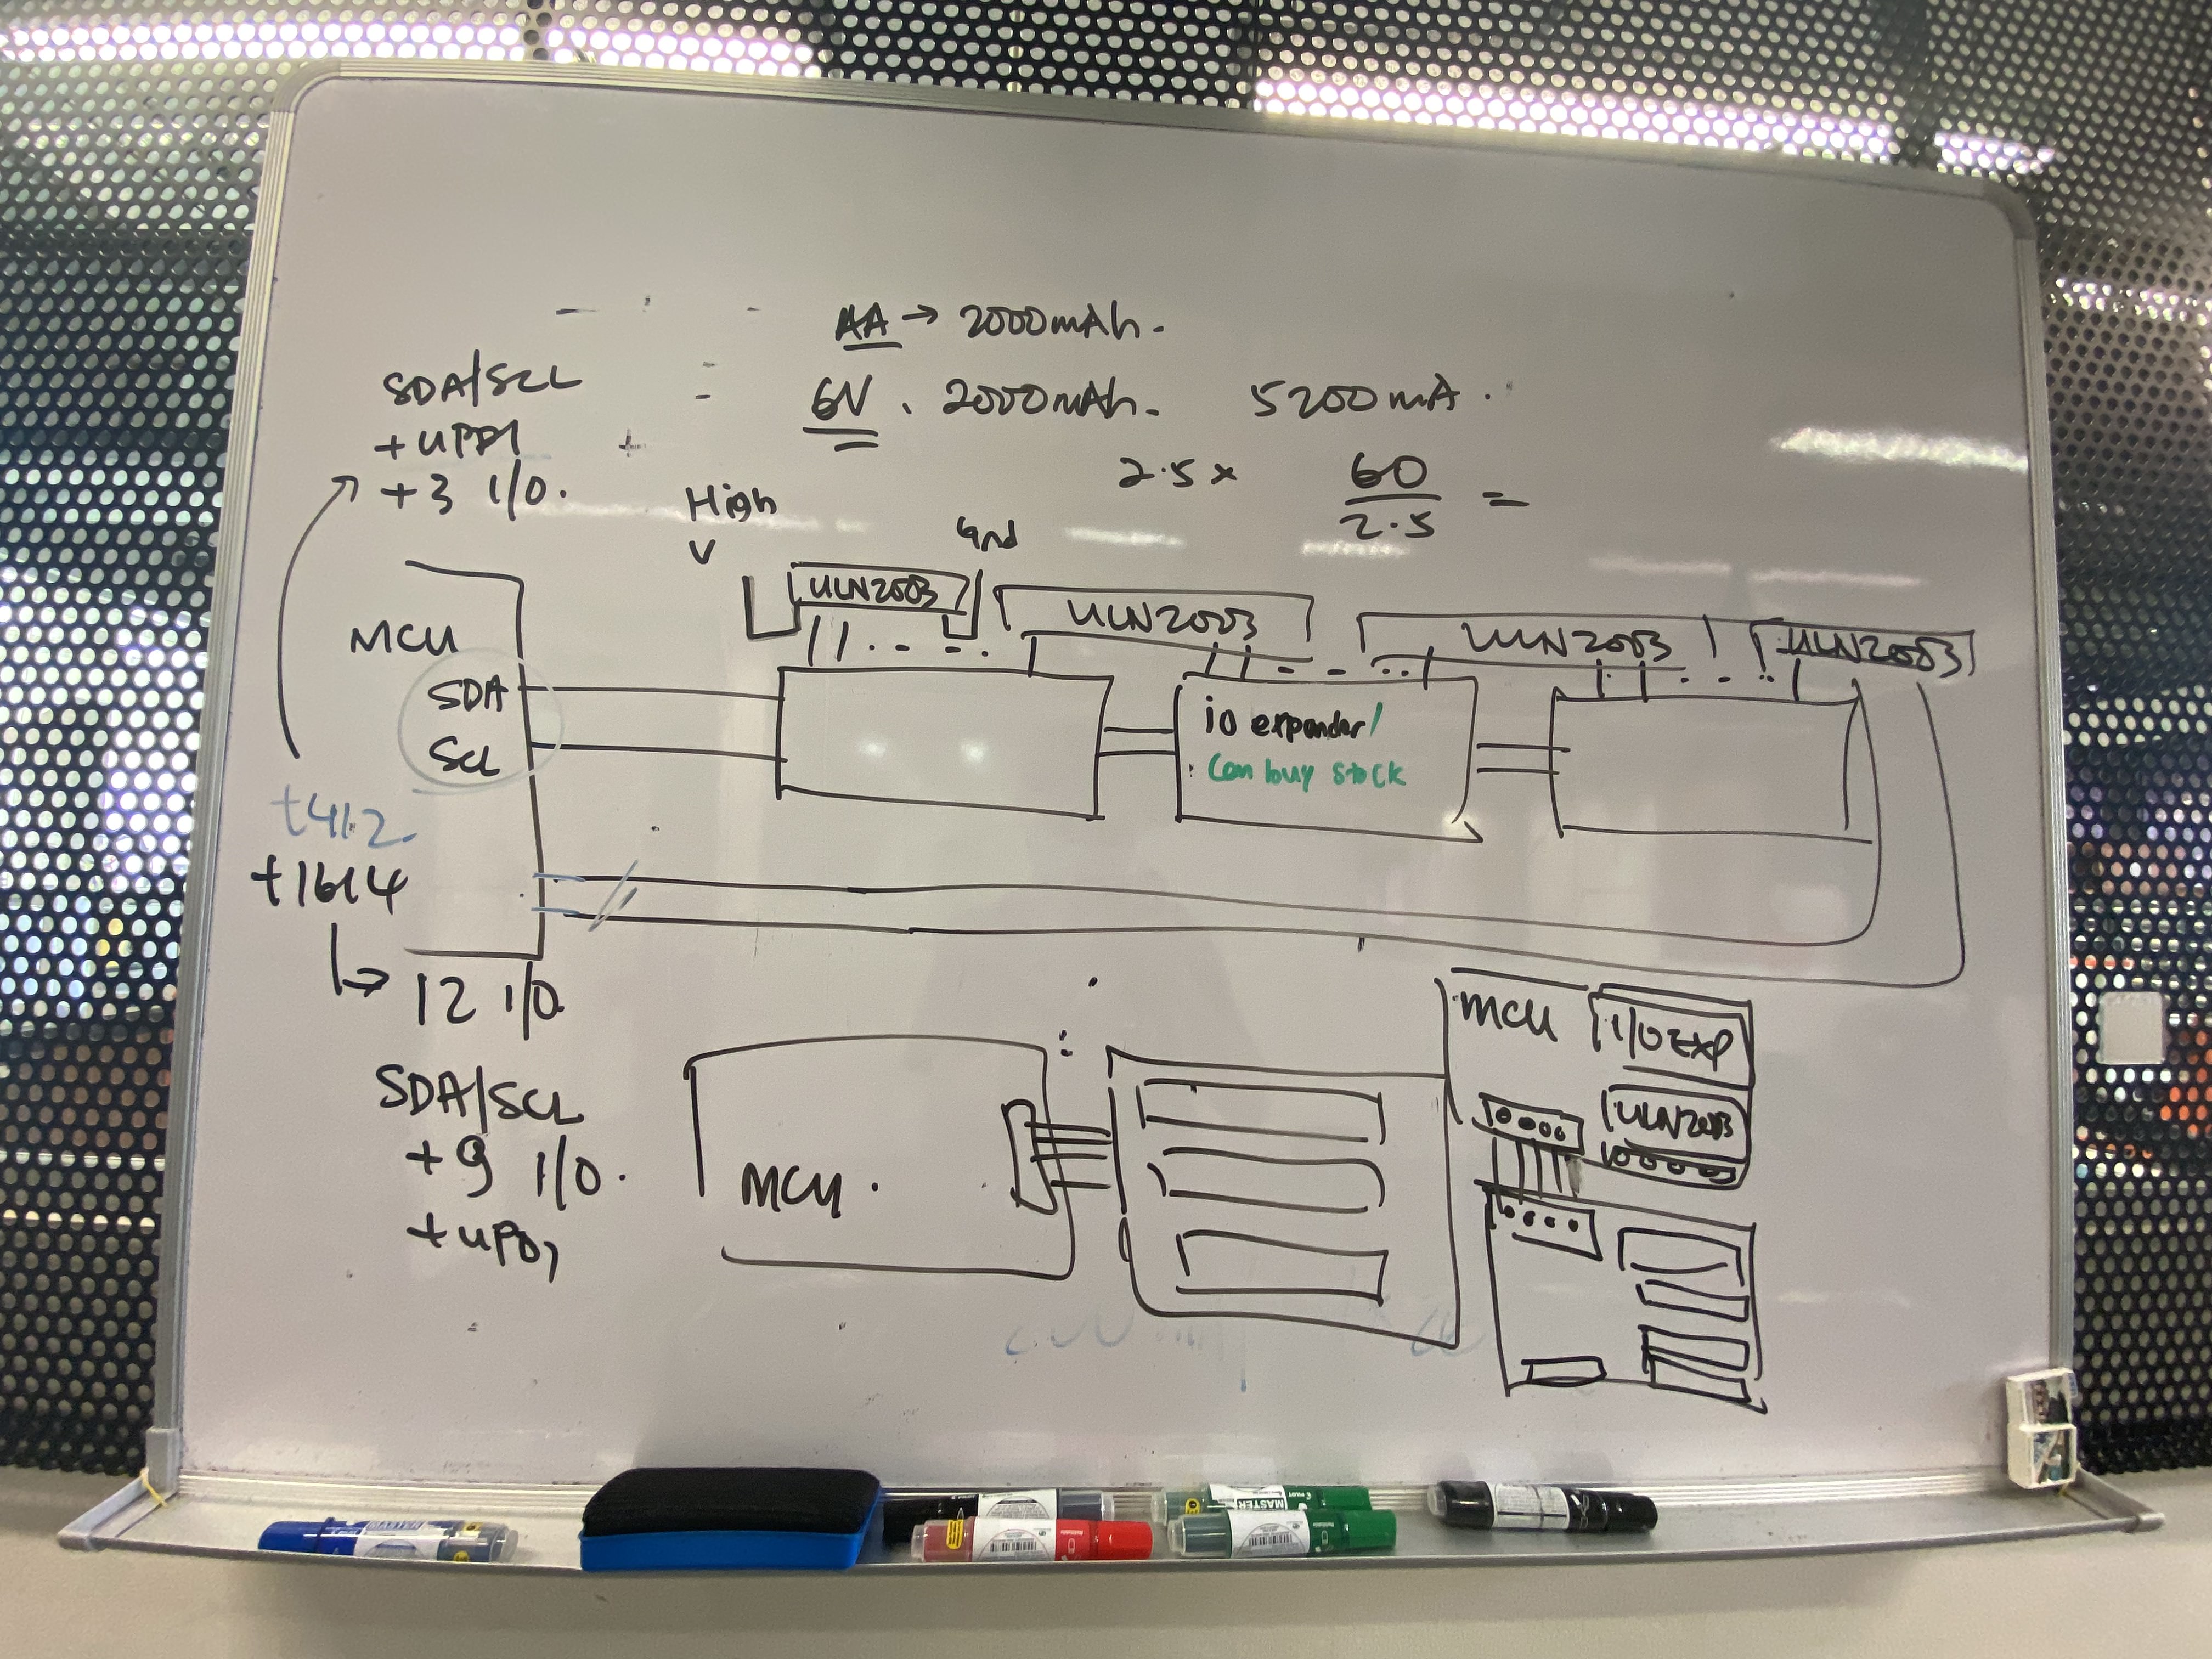 AA → 2000mAh.
6V. 2000mAh. 5200mA.
2.5 x 60/2.5 =
SDA/SCL
+ UPDI
+3 I/O.
High
V
Gnd
ULN2003
ULN2003
ULN2003
ULN2003
MCU
SDA
SCL
io expander/
Can buy stock
t412
t1614
↳ 12 I/O
SDA/SCL
+9 I/O.
+ UPDI
MCU.
MCU
I/O EXP
ULN2003
MASTER
MASTER
PILOT